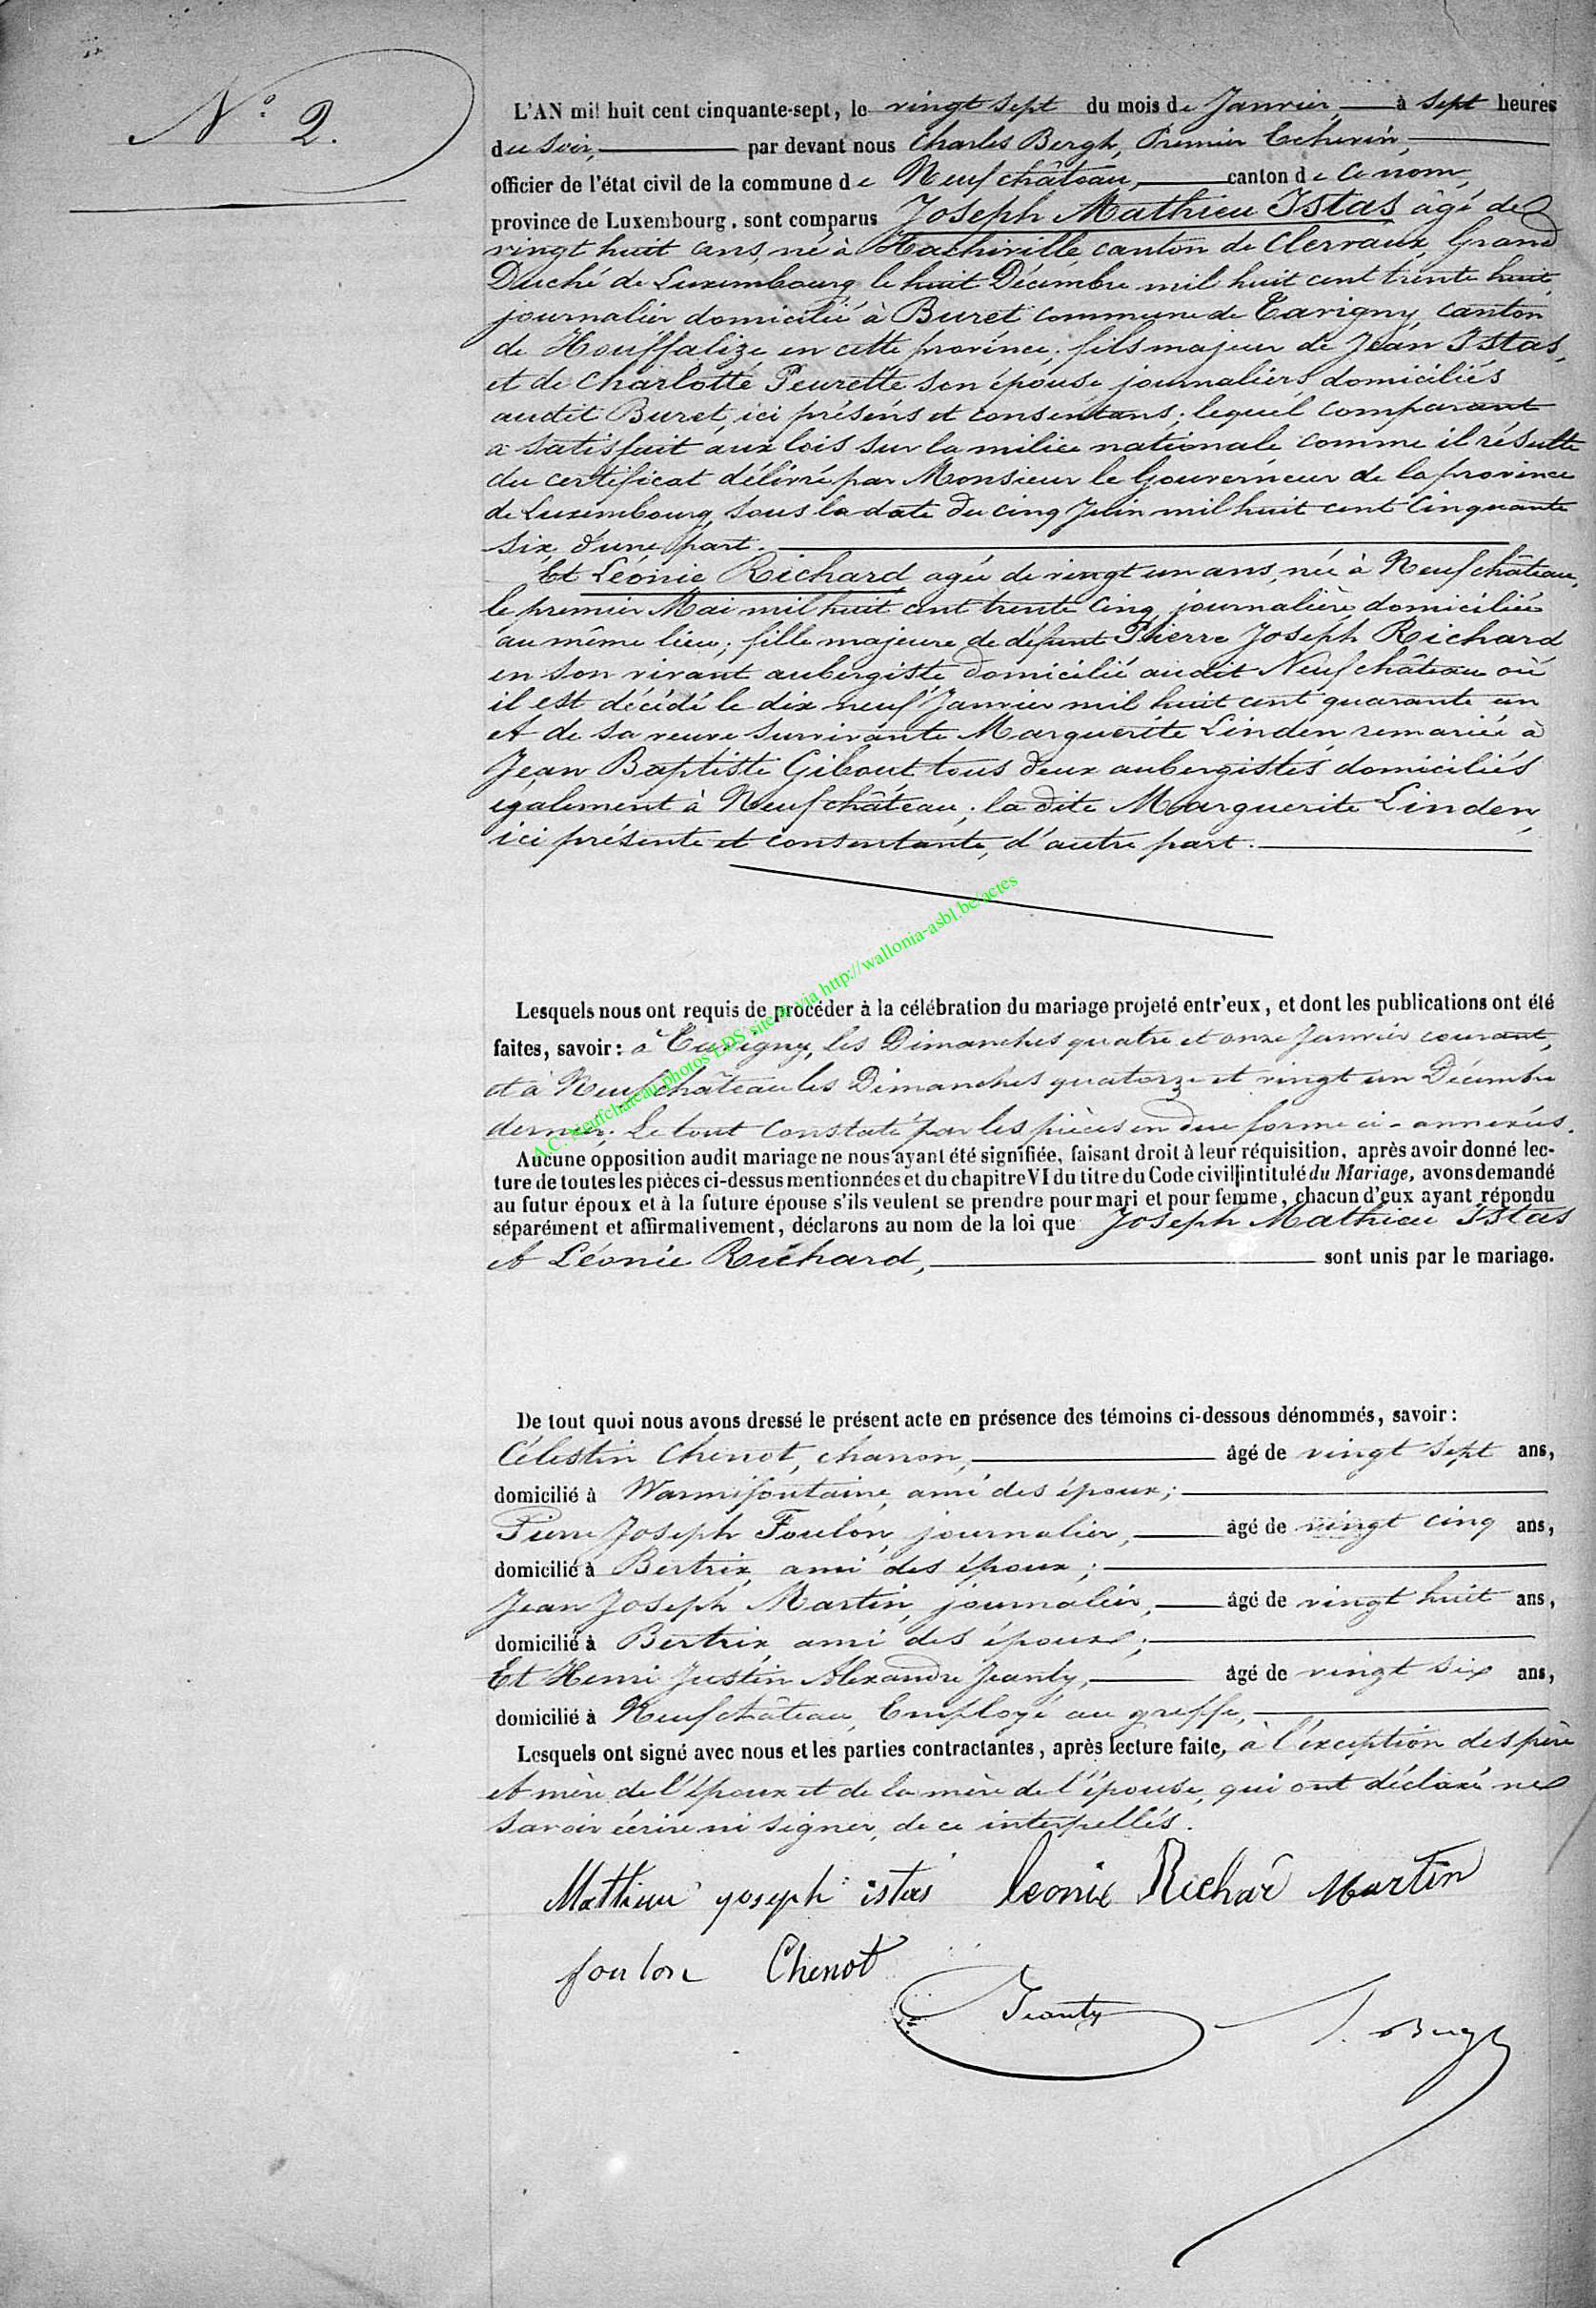 N° 2.
L'AN mil huit cent cinquante-sept, le vingt sept du mois de Janvier, à sept heures
du soir, par devant nous Charles Bergh, Premier Echevin,
officier de l'état civil de la commune de Neufchâteau, canton de ce nom,
province de Luxembourg, sont comparus Joseph Mathieu Istas âgé de
vingt huit ans, né à Hachiville canton de Clervaux Grand
Duché de Luxembourg le huit Décembre mil huit cent trente huit
journalier domicilié à Buret commune de Tavigny, canton
de Houffalize en cette province; fils majeur de Jean Istas,
et de Charlotte Peurette son épouse journaliers domiciliés
audit Buret, ici présens et consentans; lequel comparant
a satisfait aux lois sur la milice nationale comme il résulte
du certificat délivré par Monsieur le Gouverneur de la province
de Luxembourg sous la date du cinq Juin mil huit cent cinquante
six, d'une part.
Et Léonie Richard agée de vingt un ans, née à Neufchâteau,
le premier Mai mil huit cent trente cinq, journalière domiciliée
au même lieu; fille majeure de défunt Pierre Joseph Richard
en son vivant aubergiste domicilié audit Neufchâteau où
il est décédé le dix neuf Janvier mil huit cent quarante un
et de sa veuve survivante Marguerite Linden remariée à
Jean Baptiste Gibout tous deux aubergistes domiciliés
également à Neufchâteau; la dite Marguerite Linden,
ici présente et consentante, d'autre part.
Lesquels nous ont requis de procéder à la célébration du mariage projeté entr'eux, et dont les publications ont été
faites, savoir: à Tavigny, les Dimanches quatre et onze Janvier courant,
et à Neufchâteau les Dimanches quatorze et vingt un Décembre
dernier. Le tout constaté par les pièces en due forme ci-annexées.
A.C. Neufchateau photos LDS site et via http://wallonia-asbl.be/actes
Aucune opposition audit mariage ne nous ayant été signifiée, faisant droit à leur réquisition, après avoir donné lec-
ture de toutes les pièces ci-dessus mentionnées et du chapitre VI du titre du Code civil intitulé du Mariage, avons demandé
au futur époux et à la future épouse s'ils veulent se prendre pour mari et pour femme, chacun d'eux ayant répondu
séparément et affirmativement, déclarons au nom de la loi que Joseph Mathieu Istas
et Léonie Richard, sont unis par le mariage.
De tout quoi nous avons dressé le présent acte en présence des témoins ci-dessous dénommés, savoir:
Célestin Chenot, charron, âgé de vingt sept ans,
domicilié à Warmifontaine, ami des époux;
Pierre Joseph Foulon, journalier, âgé de vingt cinq ans,
domicilié à Bertrix, ami des époux;
Jean Joseph Martin, journalier, âgé de vingt huit ans,
domicilié à Bertrix, ami des époux;
Et Henri Justin Alexandre Jeanty, âgé de vingt six ans,
domicilié à Neufchâteau, Employé au greffe,
Lesquels ont signé avec nous et les parties contractantes, après lecture faite, à l'exception des père
et mère de l'époux et de la mère de l'épouse, qui ont déclaré ne
savoir écrire ni signer, de ce interpellés.
Mathieu joseph istas leonie Richar Martin
foulon Chenot
Jeanty Bergh